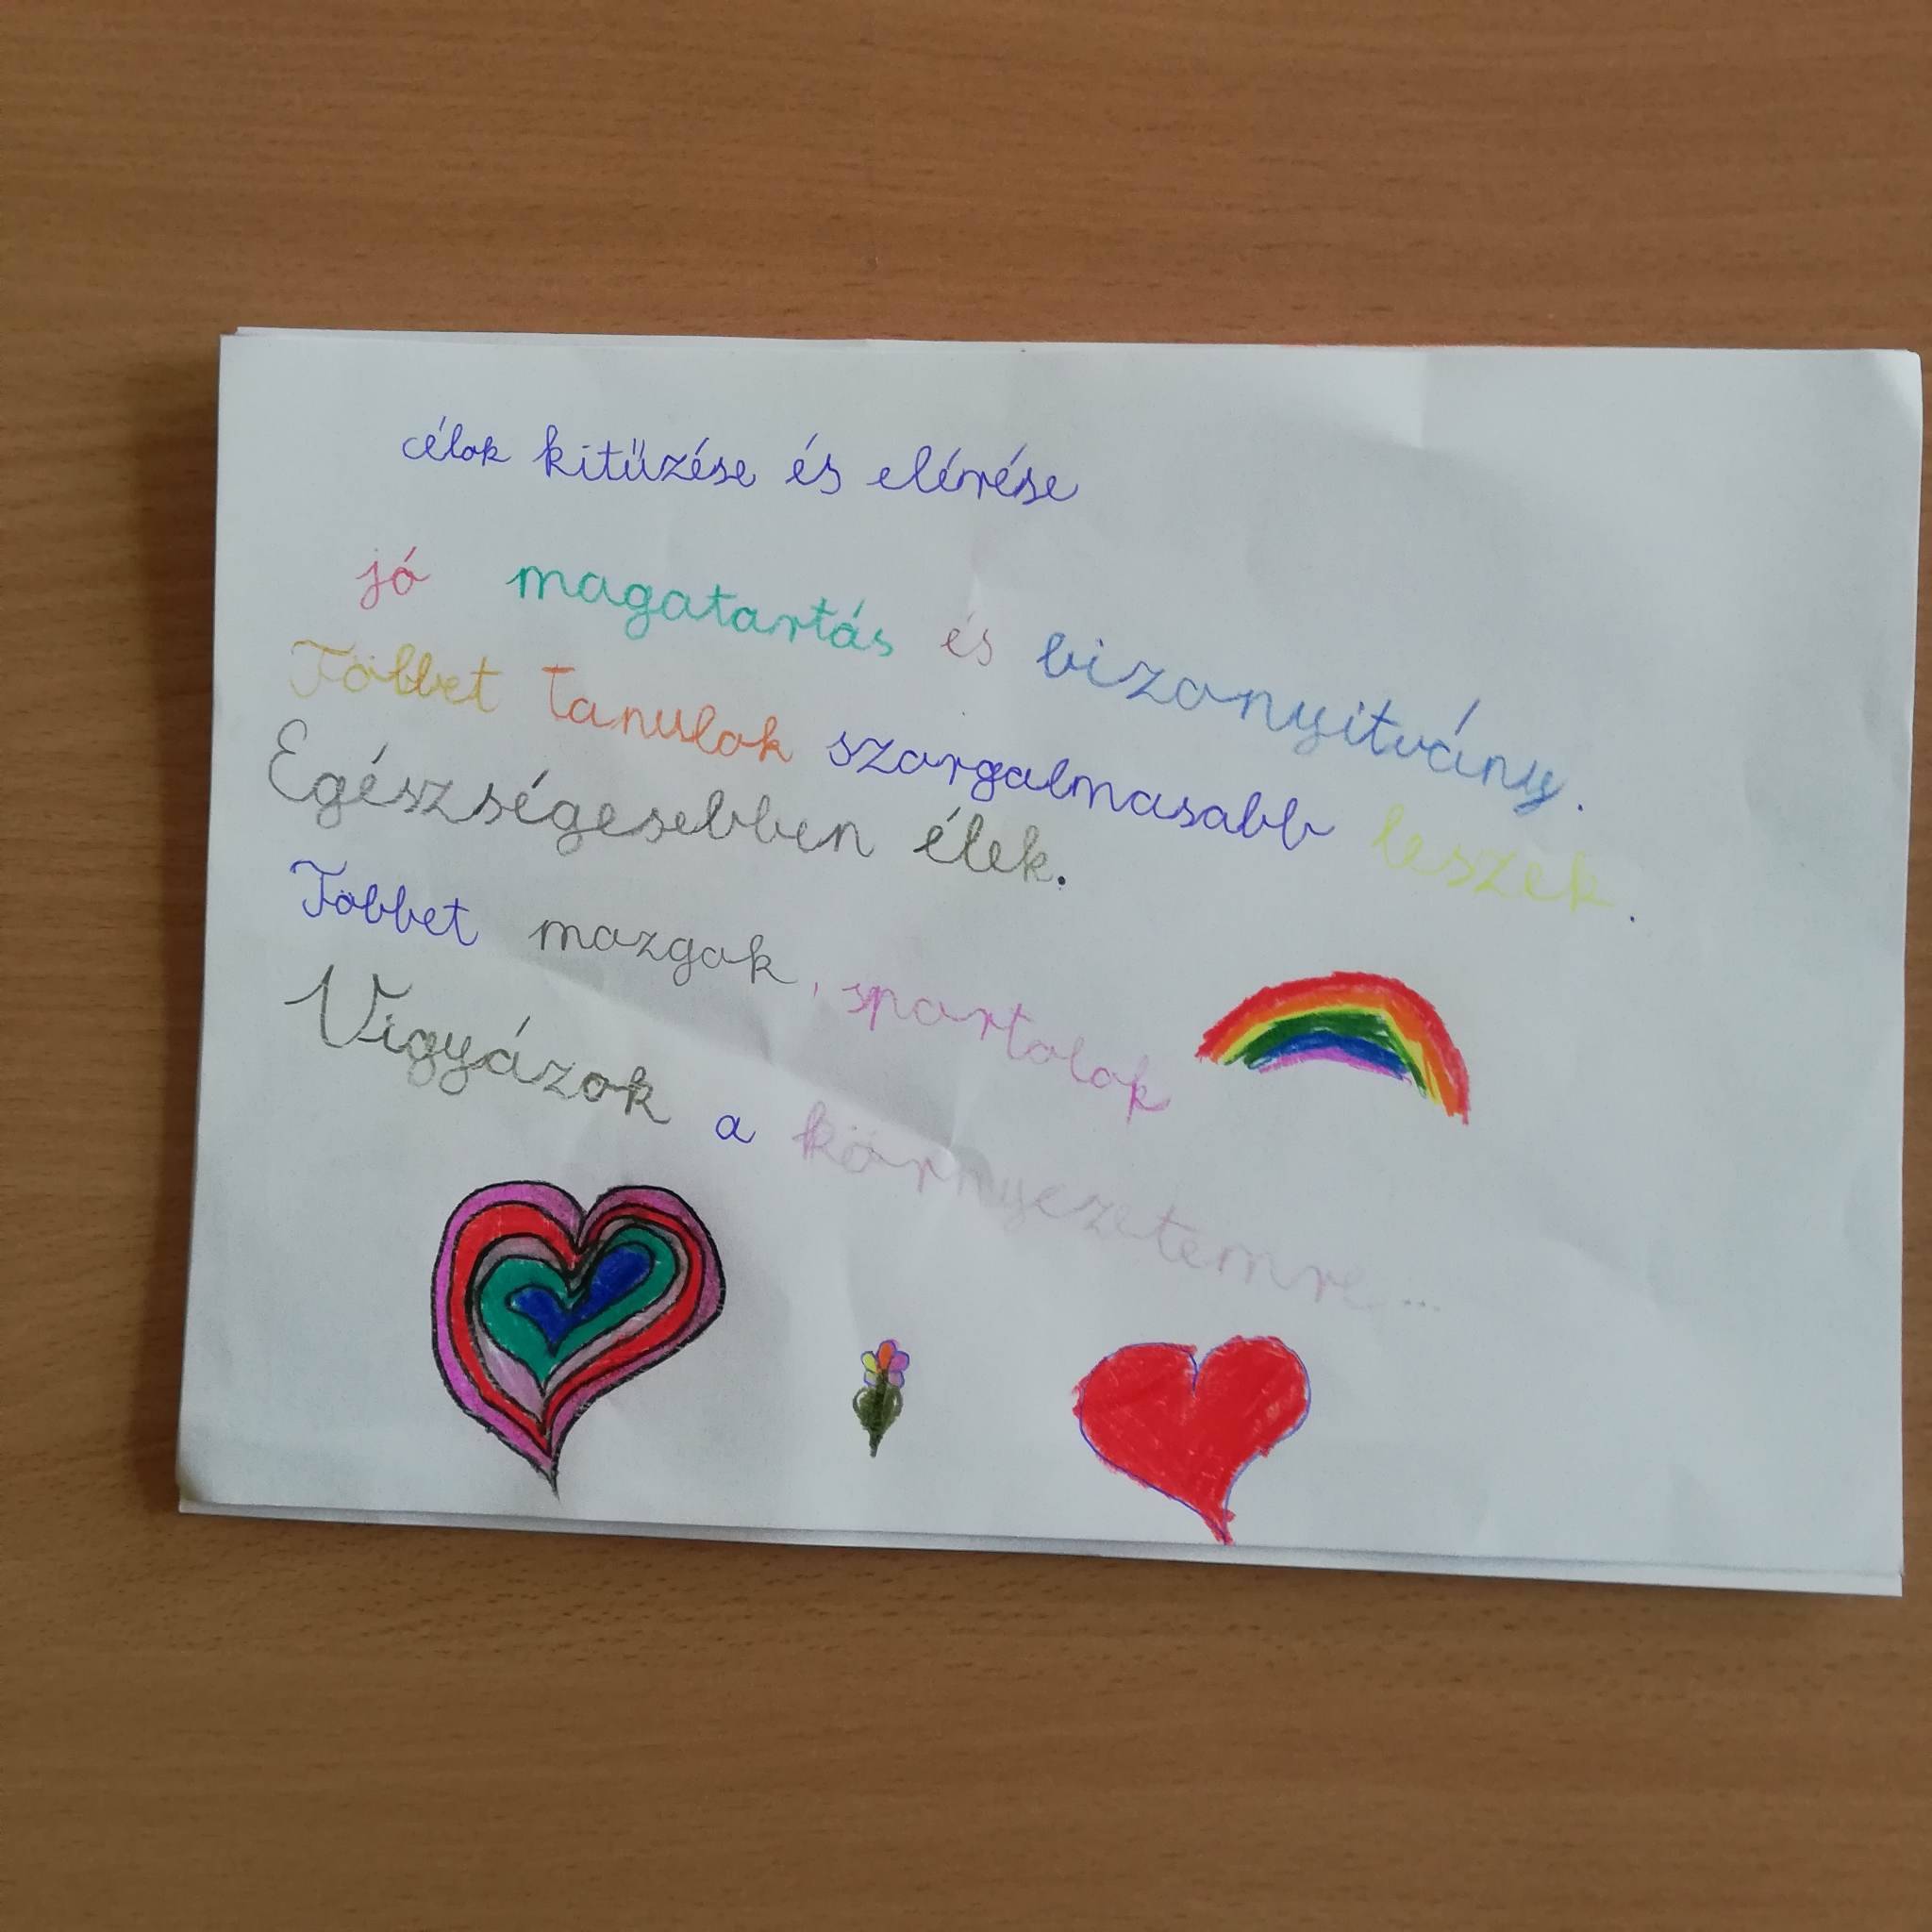 célok kitűzése és elérése
jó magatartás és bizonyitvány.
Többet tanulok szorgalmasabb leszek.
Egészségesebben élek.
Többet mozgok, sportolok
Vigyázok a környezetemre...